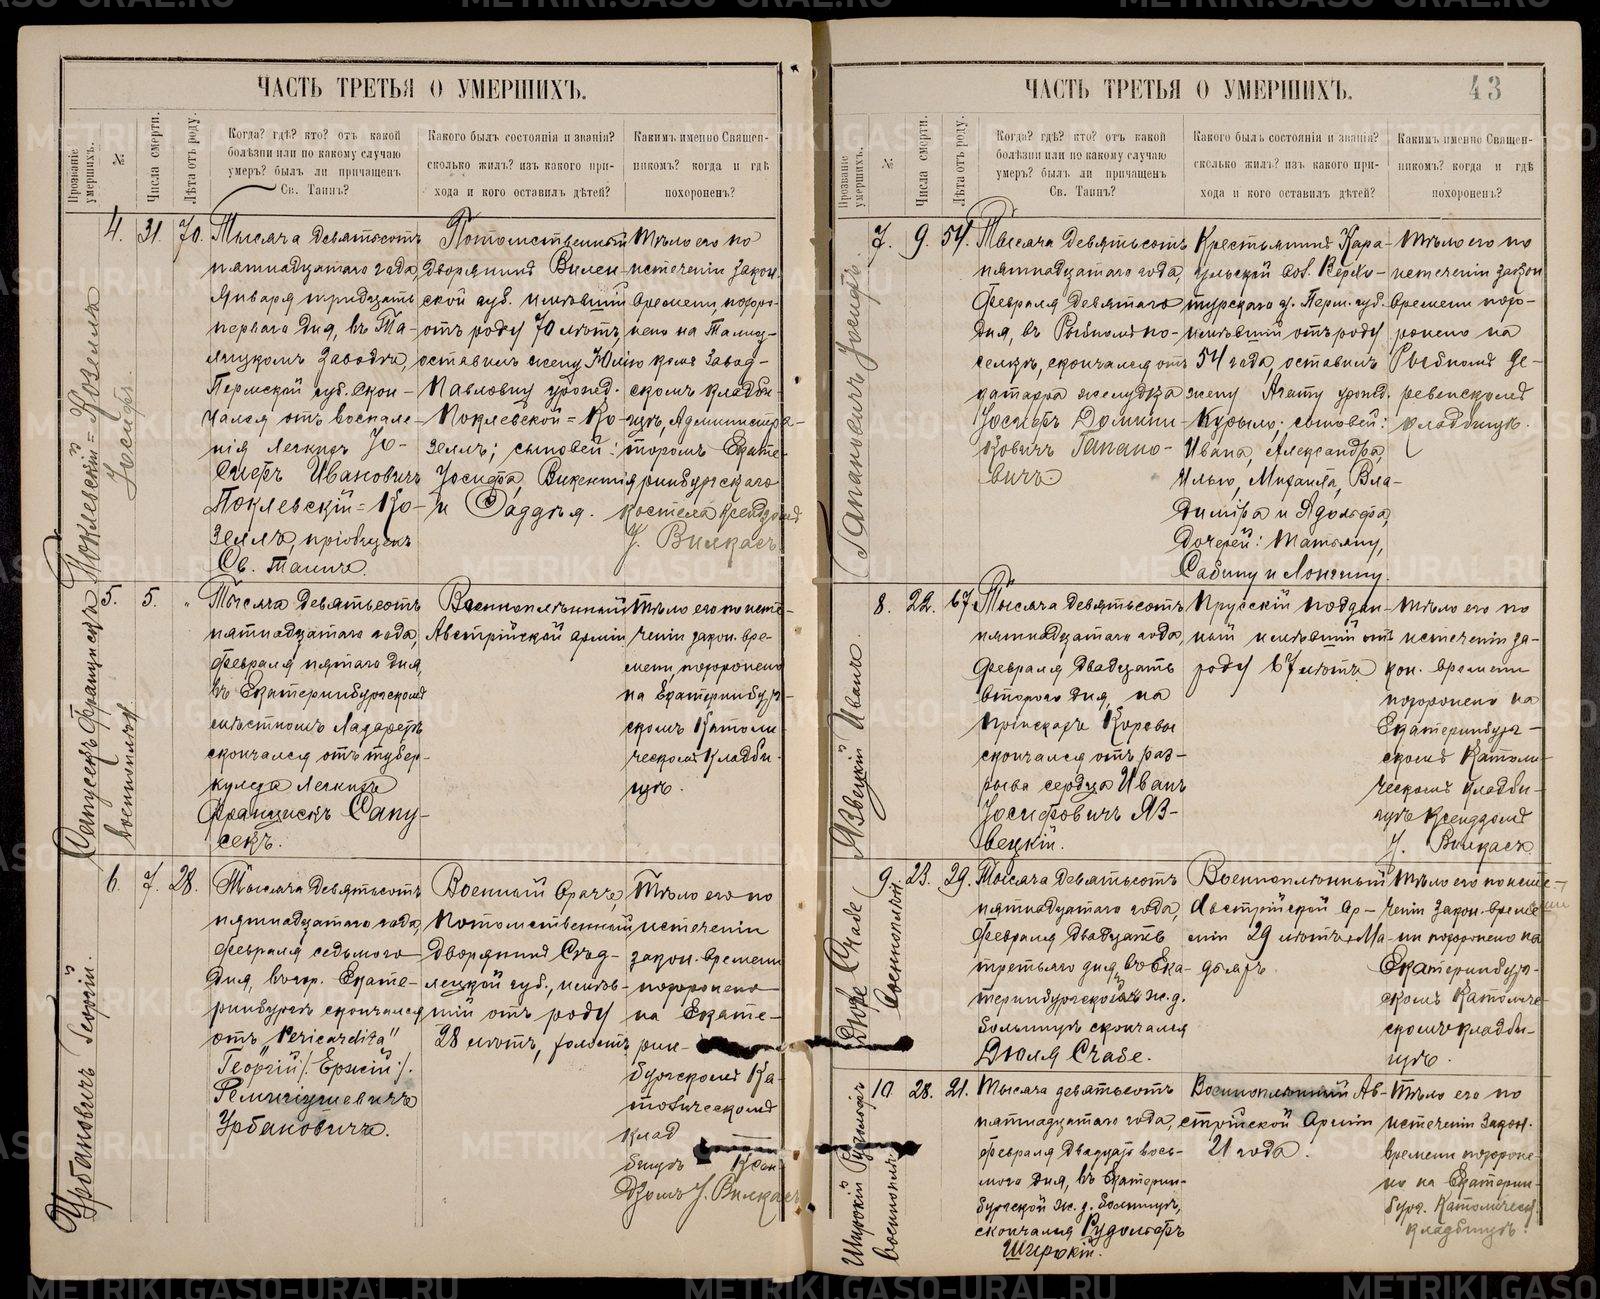 ЧАСТЬ ТРЕТЬЯ О УМЕРШИХЪ.
Прозваніе умершихъ.
№
Числа смерти.
Лѣта отъ роду.
Когда? гдѣ? кто? отъ какой
болѣзни или по какому случаю
умеръ? былъ ли причащенъ
Св. Таинъ?
Какого былъ состоянія и званія?
сколько жилъ? изъ какого при-
хода и кого оставилъ дѣтей?
Какимъ именно Священ-
никомъ? когда и гдѣ
похороненъ?
Поклевскій=Козеллъ
Іосифъ
4.
31.
70.
Тысяча девятьсотъ
пятнадцатаго года,
Января тридцать
перваго дня, въ Та-
лицкомъ Заводѣ,
Пермской губ. скон-
чался отъ воспале-
нія легкихъ Іо-
сифъ Ивановичъ
Поклевскій=Ко-
зеллъ, пріобщенъ
Св. Таинъ.
Потомственный
дворянинъ Вилен-
ской губ. имѣвшій
отъ роду 70 лѣтъ,
оставилъ жену Юлію
Павловну урожд.
Поклевской=Ко-
зеллъ; сыновей:
Іосифа, Викентія
и Фаддѣя.
Тѣло его по
истеченіи закон.
времени, похоро-
нено на Талиц-
комъ Завод-
скомъ кладби-
щѣ, Администра-
торомъ Екате-
ринбургскаго
костела ксендзомъ
І. Вилкасъ.
Сапусекъ Францискъ
военноплѣн.
5.
5.
"
Тысяча девятьсотъ
пятнадцатаго года,
Февраля пятаго дня,
въ Екатеринбургскомъ
мѣстномъ Лазаретѣ
скончался отъ тубер-
кулеза легкихъ
Францискъ Сапу-
секъ.
Военноплѣнный
Австрійской арміи
Тѣло его по исте-
ченіи закон. вре-
мени, похоронено
на Екатеринбур-
скомъ Католи-
ческомъ Кладби-
щѣ.
Урбановичъ Георгій.
6.
7.
28.
Тысяча девятьсотъ
пятнадцатаго года,
Февраля седьмого
дня, въ гор. Екате-
ринбургѣ скончался
отъ „Pericardita"
Георгій /: Ержій :/
Ремигіушевичъ
Урбановичъ.
Военный врачъ,
потомственный
дворянинъ Сѣд-
лецкой губ., имѣв-
шій отъ роду
28 лѣтъ, холостъ
Тѣло его по
истеченіи
закон. времени
похоронено
на Екате-
рин-
бургскомъ Ка-
толическомъ
клад
бищѣ Ксен-
дзомъ І. Вилкасъ
ЧАСТЬ ТРЕТЬЯ О УМЕРШИХЪ.
43
Прозваніе умершихъ.
№
Числа смерти.
Лѣта отъ роду.
Когда? гдѣ? кто? отъ какой
болѣзни или по какому случаю
умеръ? былъ ли причащенъ
Св. Таинъ?
Какого былъ состоянія и званія?
сколько жилъ? изъ какого при-
хода и кого оставилъ дѣтей?
Какимъ именно Священ-
никомъ? когда и гдѣ
похороненъ?
Гапановичъ Іосифъ.
7.
9.
54.
Тысяча девятьсотъ
пятнадцатаго года,
Февраля девятаго
дня, въ Рыбномъ по-
селкѣ, скончался отъ
катарра желудка
Іосифъ Домини-
ковичъ Гапано-
вичъ
Крестьянинъ Кара-
ульской вол. Верхо-
турскаго у. Перм. губ.
имѣвшій отъ роду
54 года, оставилъ
жену Агату урожд.
Курыло; сыновей:
Ивана, Александра,
Илью, Михаила, Вла-
диміра и Адольфа,
дочерей: Татьяну,
Сабину и Лонгину.
Тѣло его по
истеченіи закон
времени похо-
ронено на
Рыбномъ де-
ревенскомъ
кладбищѣ.
Язвецкій Иванъ.
8.
22.
67
Тысяча девятьсотъ
пятнадцатаго года,
Февраля двадцать
второго дня, на
пріискахъ Коревы
скончался отъ раз-
рыва сердца Иванъ
Іосифовичъ Яз-
вецкій.
Прусскій поддан-
ный имѣвшій отъ
роду 67 лѣтъ
Тѣло его по
истеченіи за-
кон. времени
похоронено на
Екатеринбург-
скомъ Католи-
ческомъ кладби-
щѣ ксендзомъ
І. Вилкасъ
Дюля Счабе
Военноплѣн.
9.
23.
29.
Тысяча девятьсотъ
пятнадцатаго года,
Февраля двадцать
третьяго дня, въ Ека-
теринбургской ж. д.
больницѣ скончался
Дюля Счабе.
Военноплѣнный
Австрійской Ар-
міи 29 лѣтъ, Ма-
дьяръ.
Тѣло его по исте-
ченіи закон. време-
ни похоронено на
Екатеринбур-
скомъ Католиче-
скомъ кладби-
щѣ.
Широкій Рудольфъ
военноплѣн.
10
28.
21.
Тысяча девятьсотъ
пятнадцатаго года,
Февраля двадцать вось-
мого дня, въ Екатерин-
бургской ж. д. больницѣ,
скончался Рудольфъ
Широкій.
Военноплѣнный Ав-
стрійской Арміи
21 года.
Тѣло его по
истеченіи закон.
времени похороне-
но на Екатерин-
бург. Католическ.
кладбищѣ.
METRIKI.GASO-URAL.RU